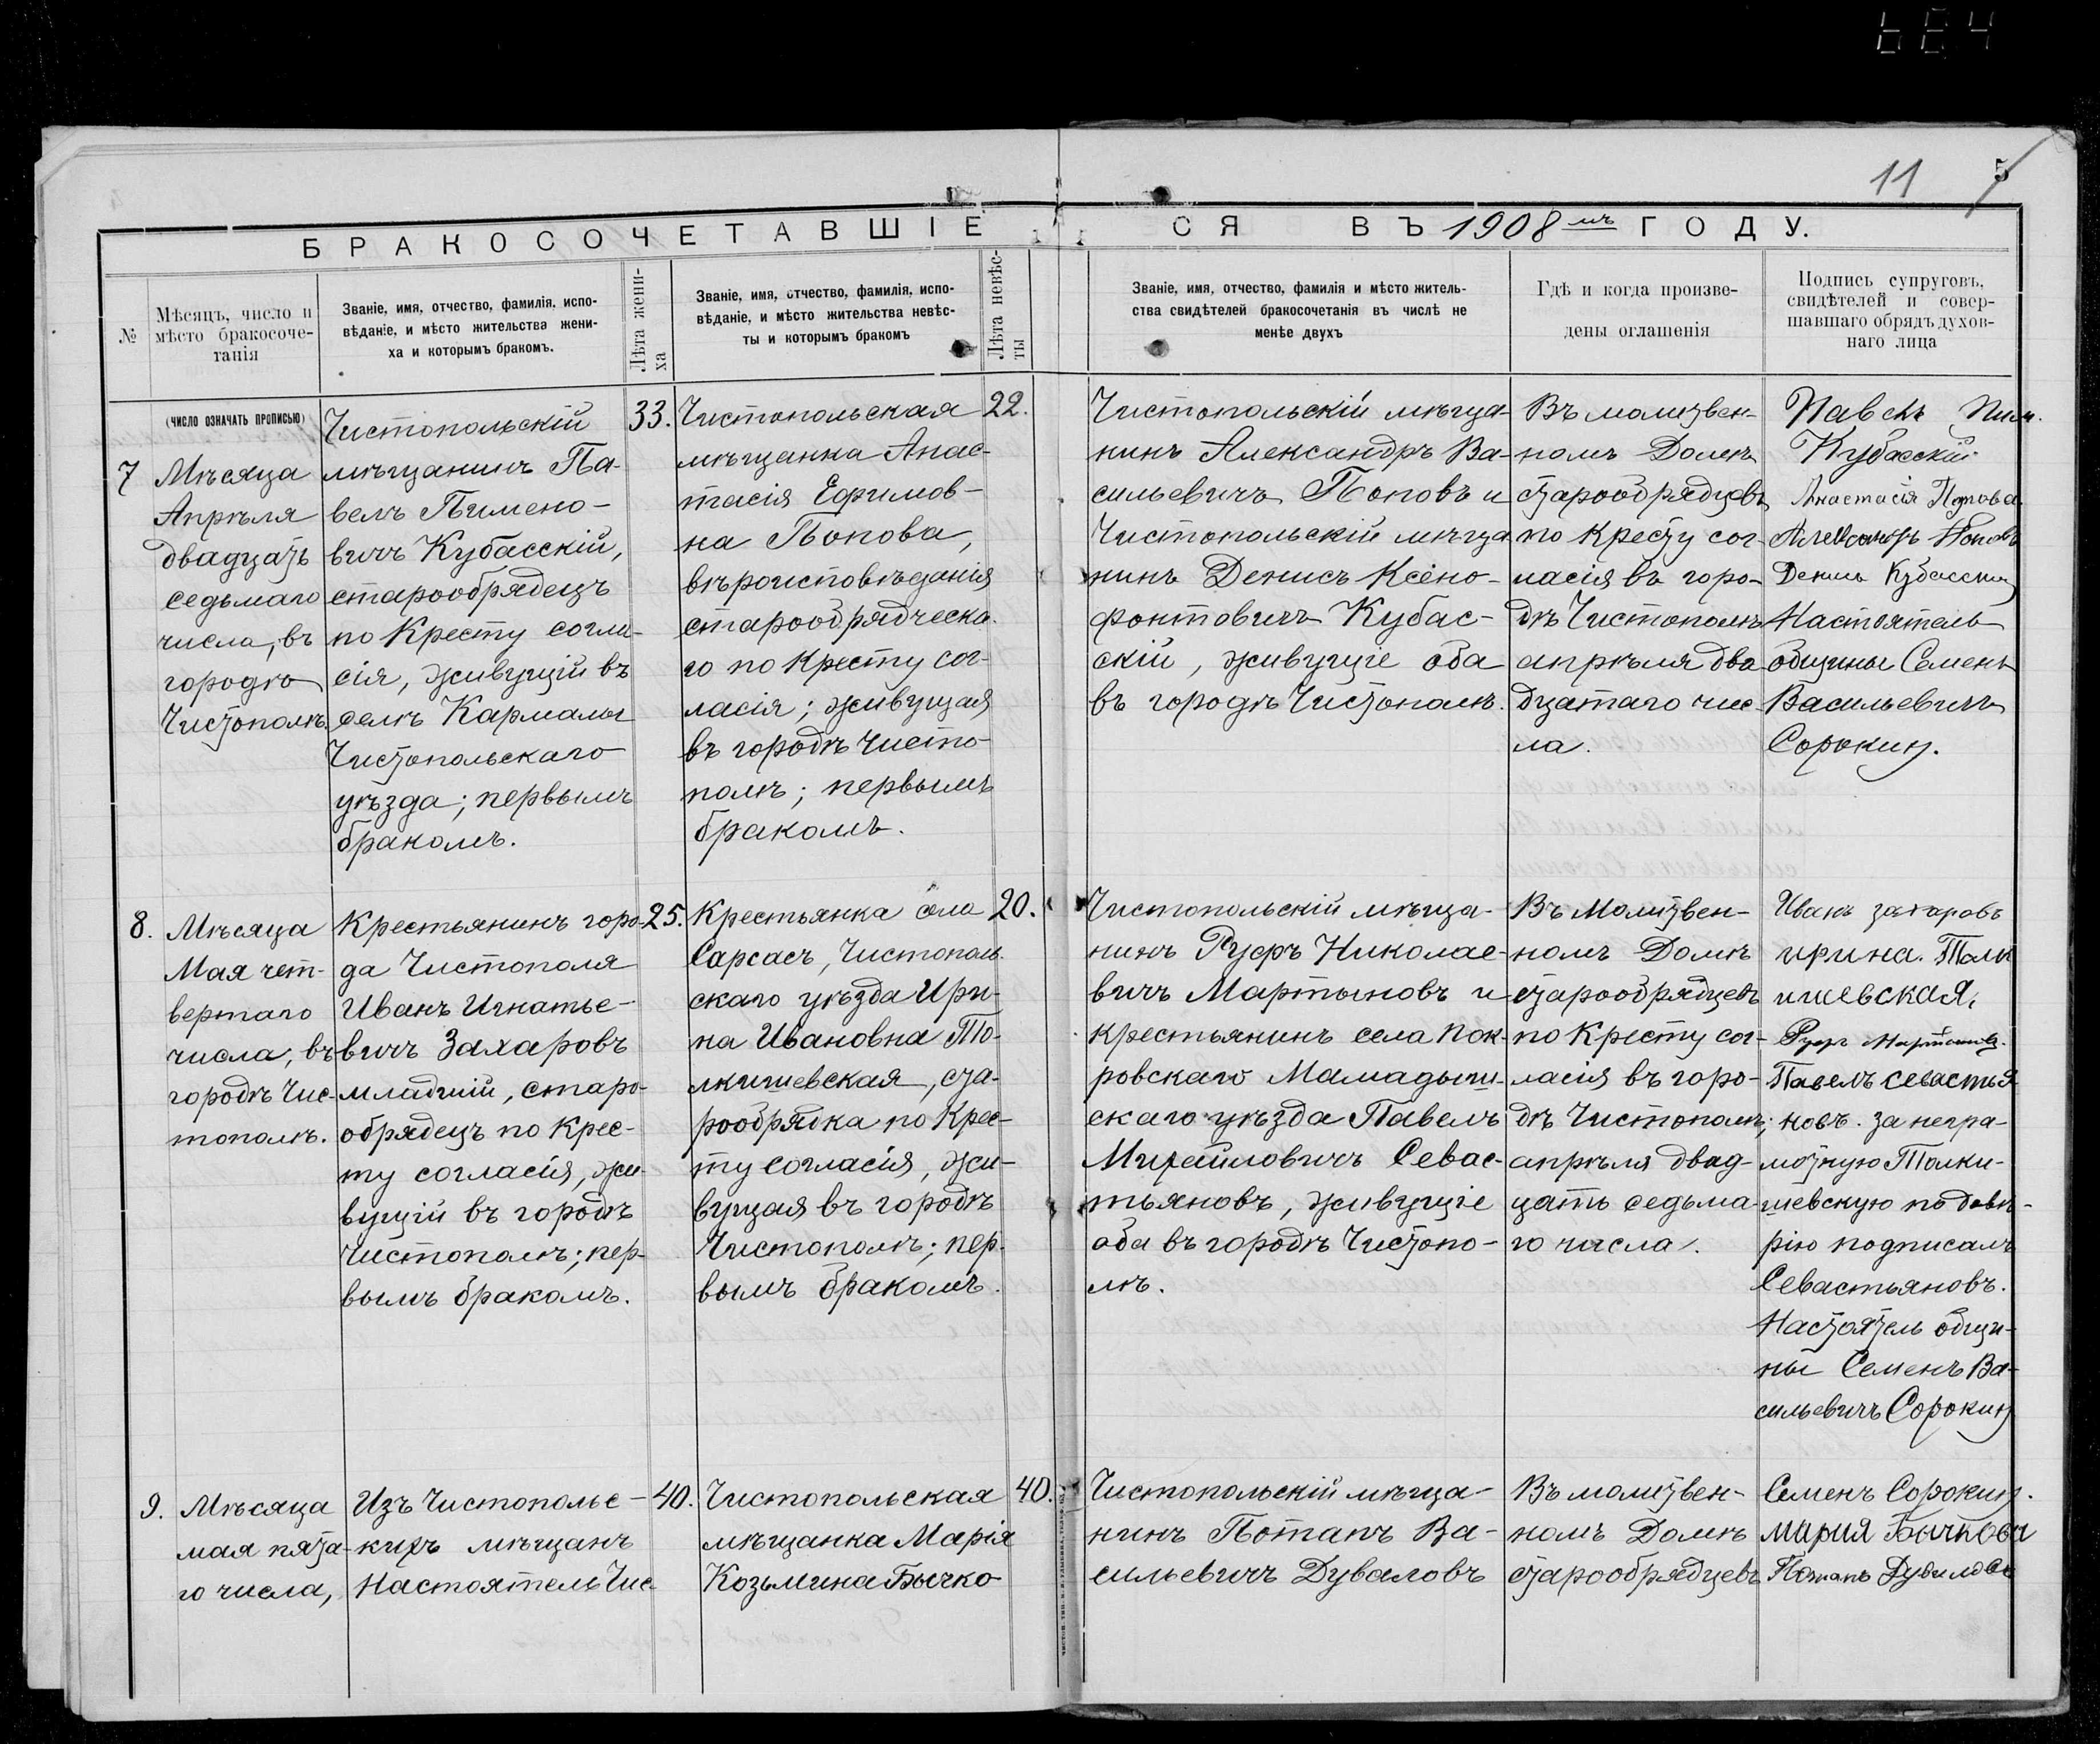 11 5
БРАКОСОЧЕТАВШІЕСЯ ВЪ 1908 мъ ГОДУ.
№
Мѣсяцъ, число и
мѣсто бракосоче-
танія
Званіе, имя, отчество, фамилія, испо-
вѣданіе, и мѣсто жительства жени-
ха и которымъ бракомъ.
Лѣта жени-
ха
Званіе, имя, отчество, фамилія, испо-
вѣданіе, и мѣсто жительства невѣс-
ты и которымъ бракомъ
Лѣта невѣс-
ты
Званіе, имя, отчество, фамилія и мѣсто житель-
ства свидѣтелей бракосочетанія въ числѣ не
менѣе двухъ
Гдѣ и когда произве-
дены оглашенія
Подпись супруговъ,
свидѣтелей и совер-
шавшаго обрядъ духов-
наго лица
(число означать прописью)
7
Мѣсяца
Апрѣля
двадцать
седьмаго
числа, въ
городѣ
Чистополѣ
Чистопольскій
мѣщанинъ Па-
велъ Пимено-
вичъ Кубасскій,
старообрядецъ
по Кресту согла-
сія, живущій въ
селѣ Кармалы
Чистопольскаго
уѣзда; первымъ
бракомъ.
33.
Чистопольская
мѣщанка Анас-
тасія Ефимов-
на Попова,
вѣроисповѣданія
старообрядческа-
го по Кресту сог-
ласія; живущая
въ городѣ Чисто-
полѣ; первымъ
бракомъ.
22.
Чистопольскій мѣща-
нинъ Александръ Ва-
сильевичъ Поповъ и
Чистопольскій мѣща
нинъ Денисъ Ксено-
фонтовичъ Кубас-
скій, живущіе оба
въ городѣ Чистополѣ.
Въ молитвен-
номъ Домѣ
старообрядцевъ
по Кресту сог-
ласія въ горо-
дѣ Чистополѣ
апрѣля два
дцатаго чис-
ла.
Павелъ Пим.
Кубасскій
Анастасія Попова
Александръ Поповъ
Денисъ Кубасскій
Настоятель
общины Семенъ
Васильевичъ
Сорокинъ.
8.
Мѣсяца
Мая чет-
вертаго
числа, въ
городѣ Чис-
тополѣ.
Крестьянинъ горо-
да Чистополя
Иванъ Игнатье-
вичъ Захаровъ
младшій, старо-
обрядецъ по Крес-
ту согласія, жи-
вущій въ городѣ
Чистополѣ; пер-
вымъ бракомъ.
25.
Крестьянка села
Сарсасъ, Чистополь-
скаго уѣзда Ири-
на Ивановна То-
лкишевская, ста-
рообрядка по Крес-
ту согласія, жи-
вущая въ городѣ
Чистополѣ; пер-
вымъ бракомъ.
20.
Чистопольскій мѣща-
нинъ Руфъ Николае-
вичъ Мартыновъ и
крестьянинъ села Пок-
ровскаго Мамадыш-
скаго уѣзда Павелъ
Михайловичъ Севас-
тьяновъ, живущіе
оба въ городѣ Чистопо-
лѣ.
Въ Молитвен-
номъ Домѣ
старообрядцевъ
по Кресту сог-
ласія въ горо-
дѣ Чистополѣ;
апрѣля двад-
цать седьма-
го числа.
Иванъ захаровъ
ирина. Толк
ишевская,
Руфъ Мартыновъ.
Павелъ Севастья
новъ. за негра-
мотную Толки-
шевскую по довѣ-
рію подписалъ
Севастьяновъ.
Настоятель общи-
ны Семенъ Ва-
сильевичъ Сорокинъ
9.
Мѣсяца
мая пята-
го числа,
Изъ Чистопольс-
кихъ мѣщанъ
Настоятель Чис-
40.
Чистопольская
мѣщанка Марія
Козьмина Бычко
40.
Чистопольскій мѣща-
нинъ Потапъ Ва-
сильевичъ Дуваловъ
Въ молитвен-
номъ Домѣ
старообрядцевъ
Семенъ Сорокинъ.
мария Бычкова
Потапъ Дуваловъ